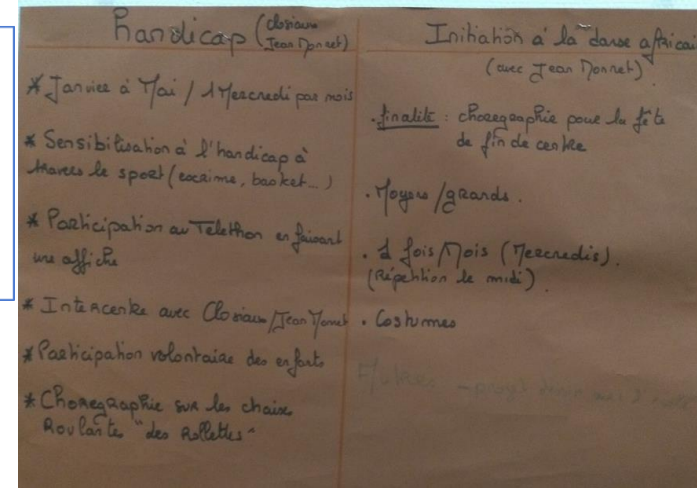 handicap (closiaux
Jean Monnet)
* Janvier à Mai / 1 Mercredi par mois
* Sensibilisation à l'handicap à
travers le sport (escrime, basket...)
* Participation au Telethon en faisant
une affiche
* Intercentre avec Closiaux/Jean Monnet
* Participation volontaire des enfants
* Choregraphie sur les chaises
Roulantes "des Rollettes"
Initiation à la danse africai
(avec Jean Monnet)
. finalité : choregraphie pour la fête
de fin de centre
. Moyens/grands.
. 1 fois/Mois (Mercredis).
(Répétition le midi)
. Costumes